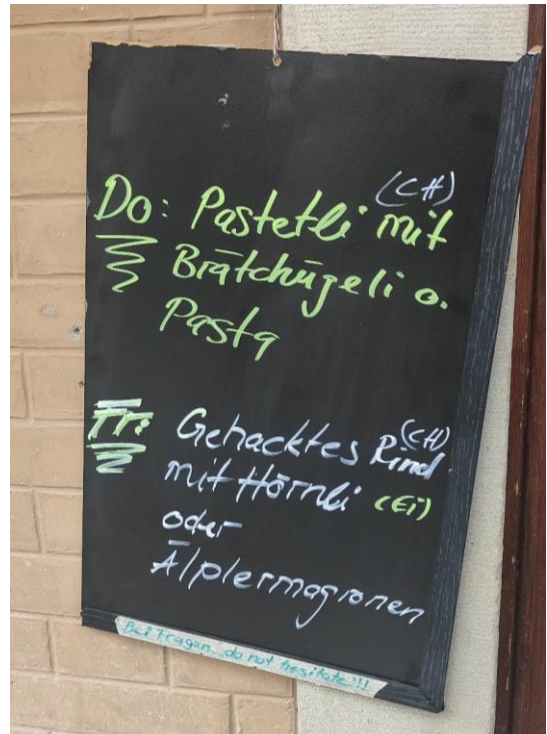 (CH)
Do: Pastetli mit
Brätchügeli o.
Pasta
Fr: Gehacktes Rind (CH)
mit Hörnli (Ei)
oder
Älplermagronen
Bei Fragen, do not hesitate!!!